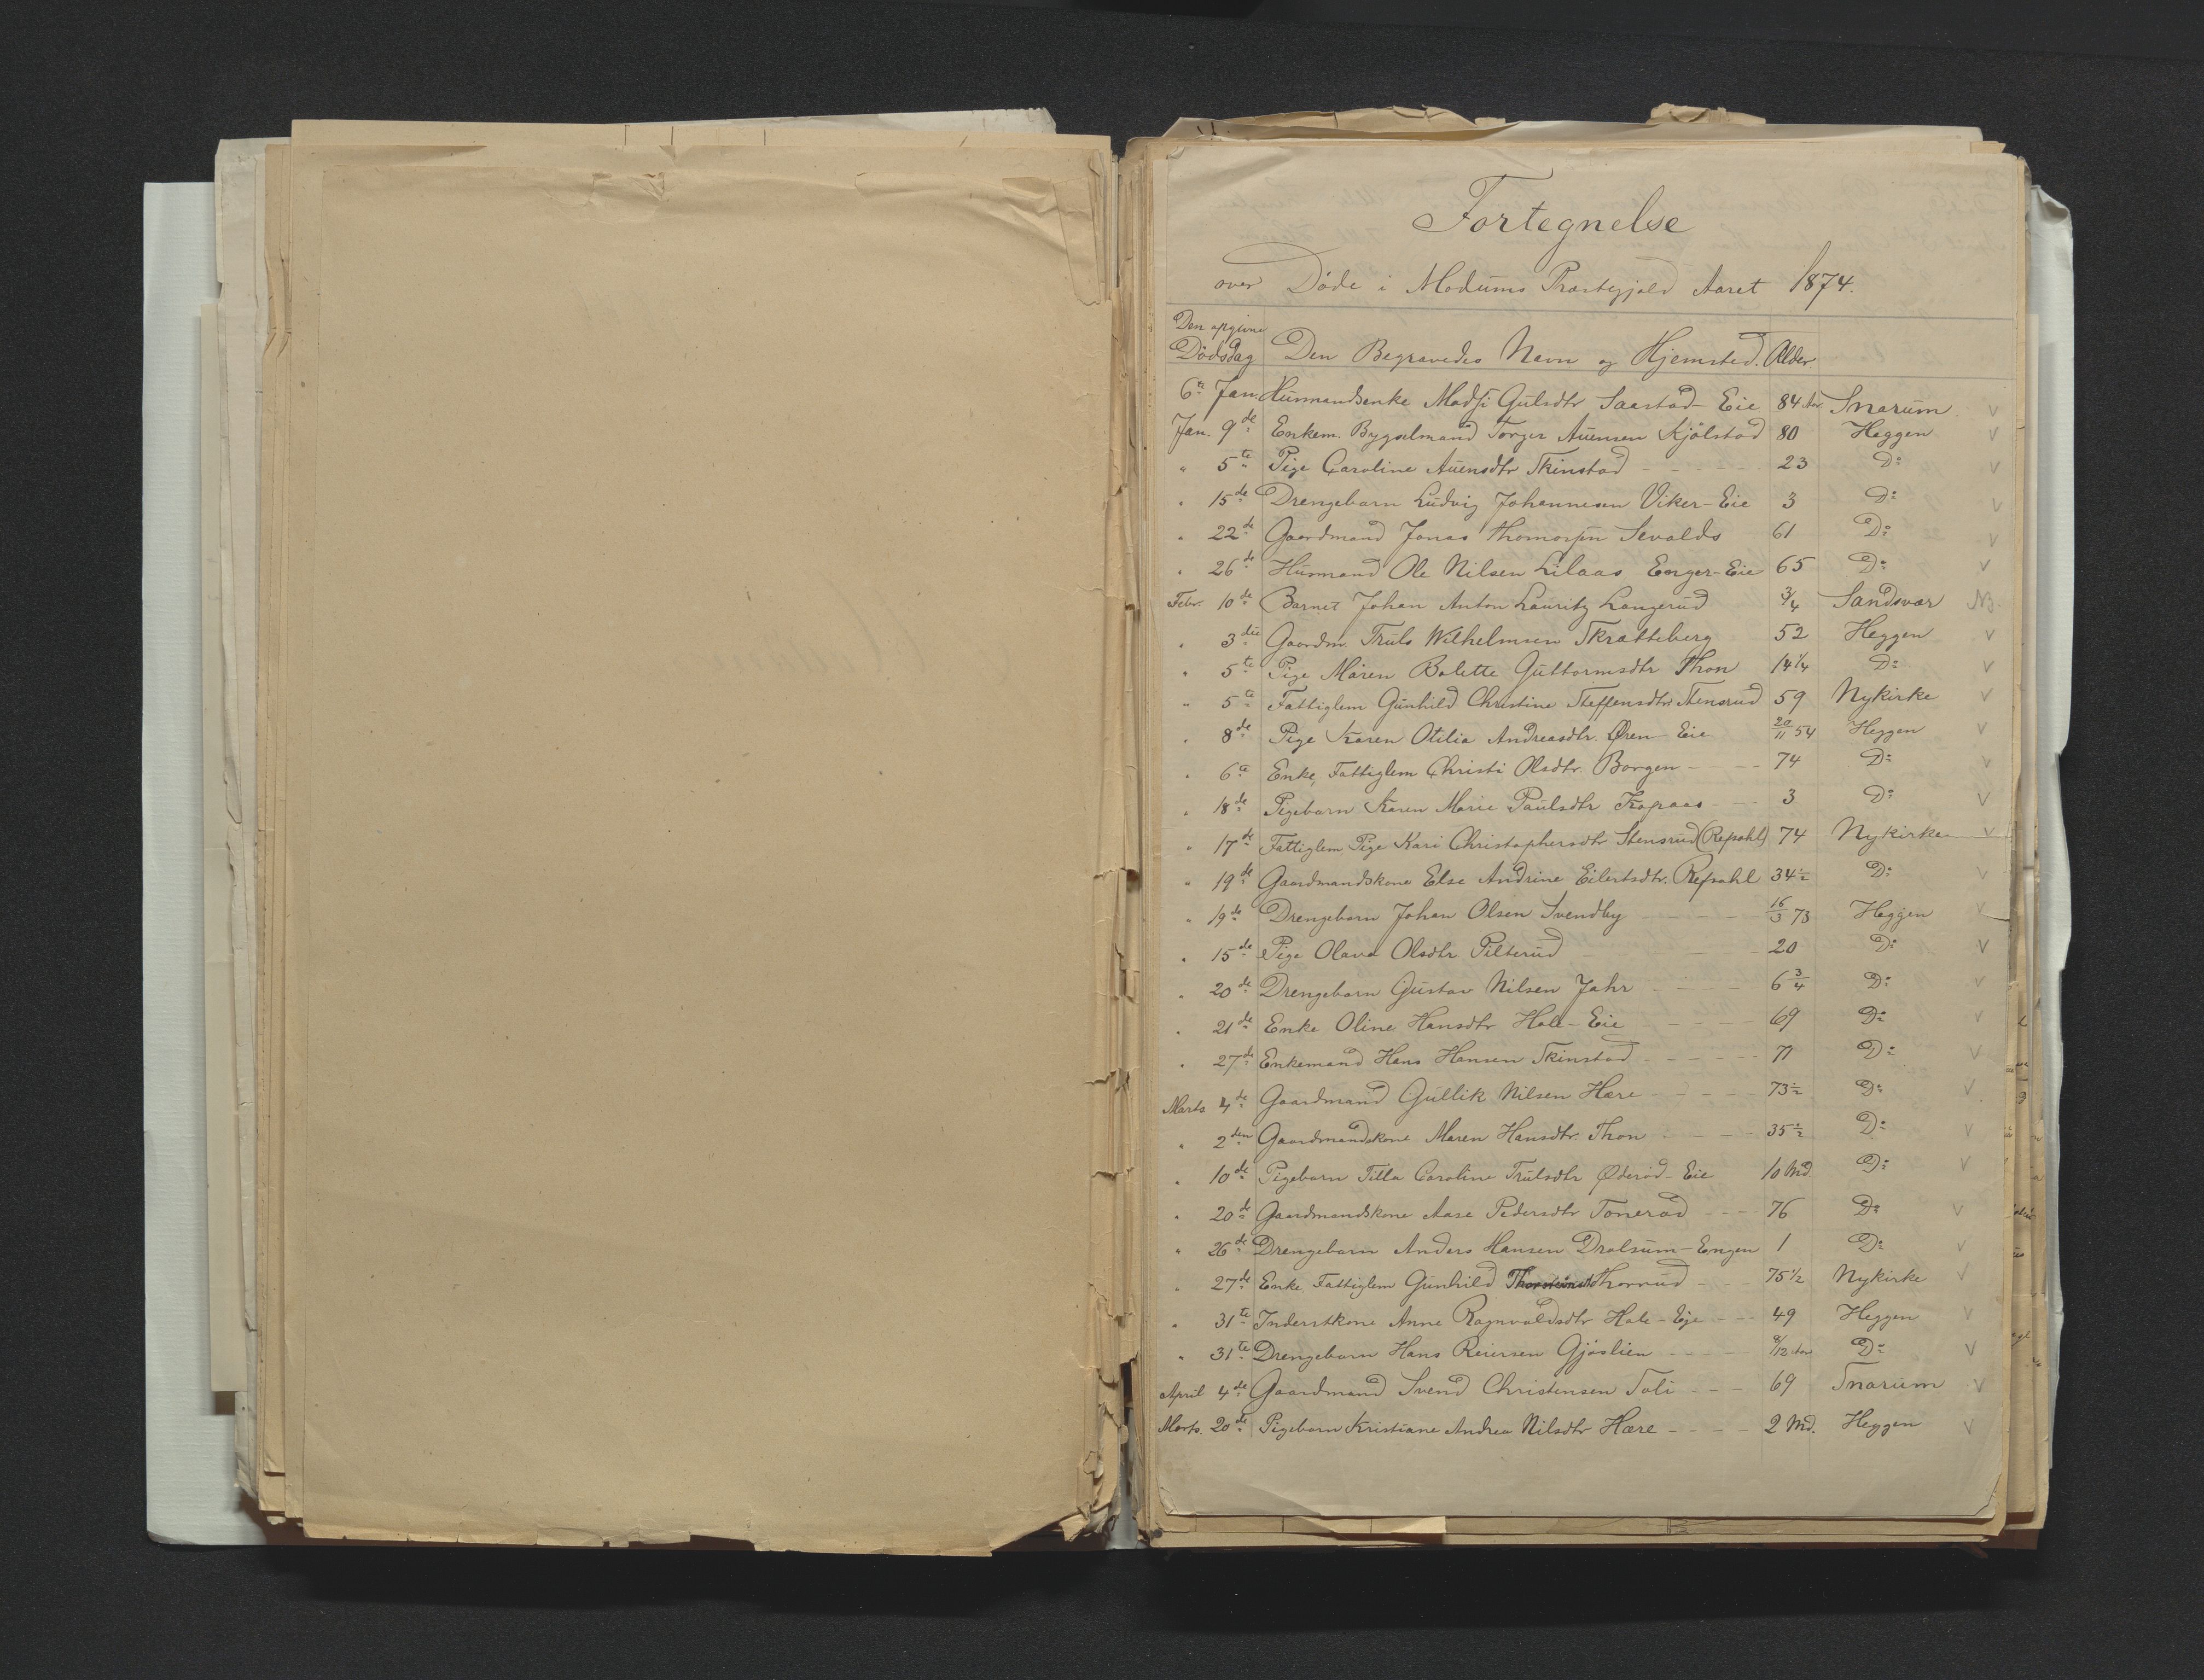 Fortegnelse
over Døde i Modums Præstegjeld Aaret 1874.
Den opgivne
Dødsdag Den Begravedes Navn og Hjemsted. Alder.
6te Jan. Husmandsenke Madsi Gulsdtr Saastad-Eie 84 Aar. Snarum v
Jan. 9de Enkem. Bygselmand Torger Auensen Kjölstad 80 Heggen v
" 5te Pige Caroline Auensdtr Skinstad - - - - 23 Do v
" 15de Drengebarn Ludvig Johannesen Viker-Eie 3 Do v
" 22de Gaardmand Jonas Thomasen Sevalds 61 Do v
" 26de Husmand Ole Nilsen Lilaas Enger-Eie 65 Do v
Febr. 10de Barnet Johan Anton Lauritz Langerud 3/4 Sandsvær NB.
" 3die Gaardm. Truls Wilhelmsen Skratteberg 52 Heggen v
" 5te Pige Maren Bolette Guttormsdtr Thon 14 1/4 Do v
" 5te Fattiglem Gunhild Christine Steffensdtr. Stensrud 59 Nykirke v
" 8de Pige Karen Otilia Andreasdtr. Øren-Eie 20/11 54 Heggen v
" 6te Enke, Fattiglem Christi Olsdtr. Borgen - - - 74 Do v
" 18de Pigebarn Karen Marie Paulsdtr Kopaas - - 3 Do v
" 17de Fattiglem Pige Kari Christophersdtr Stensrud (Refsahl) 74 Nykirke v
" 19de Gaardmandskone Else Andrine Eilertsdtr. Refsahl 34 1/2 Do v
" 19de Drengebarn Johan Olsen Svendby - - - - 16/3 73 Heggen v
" 15de Pige Olava Olsdtr Pilterud - - - 20 Do v
" 20de Drengebarn Gustav Nilsen Jahr - - - - 6 3/4 Do v
" 21de Enke Oline Hansdtr Hole-Eie - - - - 69 Do v
" 27de Enkemand Hans Hansen Skinstad - - - - - 71 Do v
Marts 4de Gaardmand Gullik Nilsen Hære - - - - - 73 1/2 Do v
" 2den Gaardmandskone Maren Hansdtr. Thon - - - - 35 1/2 Do v
" 10de Pigebarn Tilla Caroline Trulsdtr Øderud-Eie 10 Md. Do v
" 20de Gaardmandskone Aase Pedersdtr Tonerud - - - 76 Do v
" 26de Drengebarn Anders Hansen Drolsum-Engen 1 Do v
" 27de Enke Fattiglem Gunhild Thorrud - - - 75 1/2 Nykirke v
" 31te Inderstkone Anne Ragnvaldsdtr Hole-Eje - - - 49 Heggen v
" 31te Drengebarn Hans Reiersen Gjöslien - - - - 9/12 Aar Do v
April 4de Gaardmand Svend Christensen Soli - - - 69 Snarum v
Marts. 20de Pigebarn Kristiane Andrea Nilsdtr Hære - - - - 2 Md. Heggen v